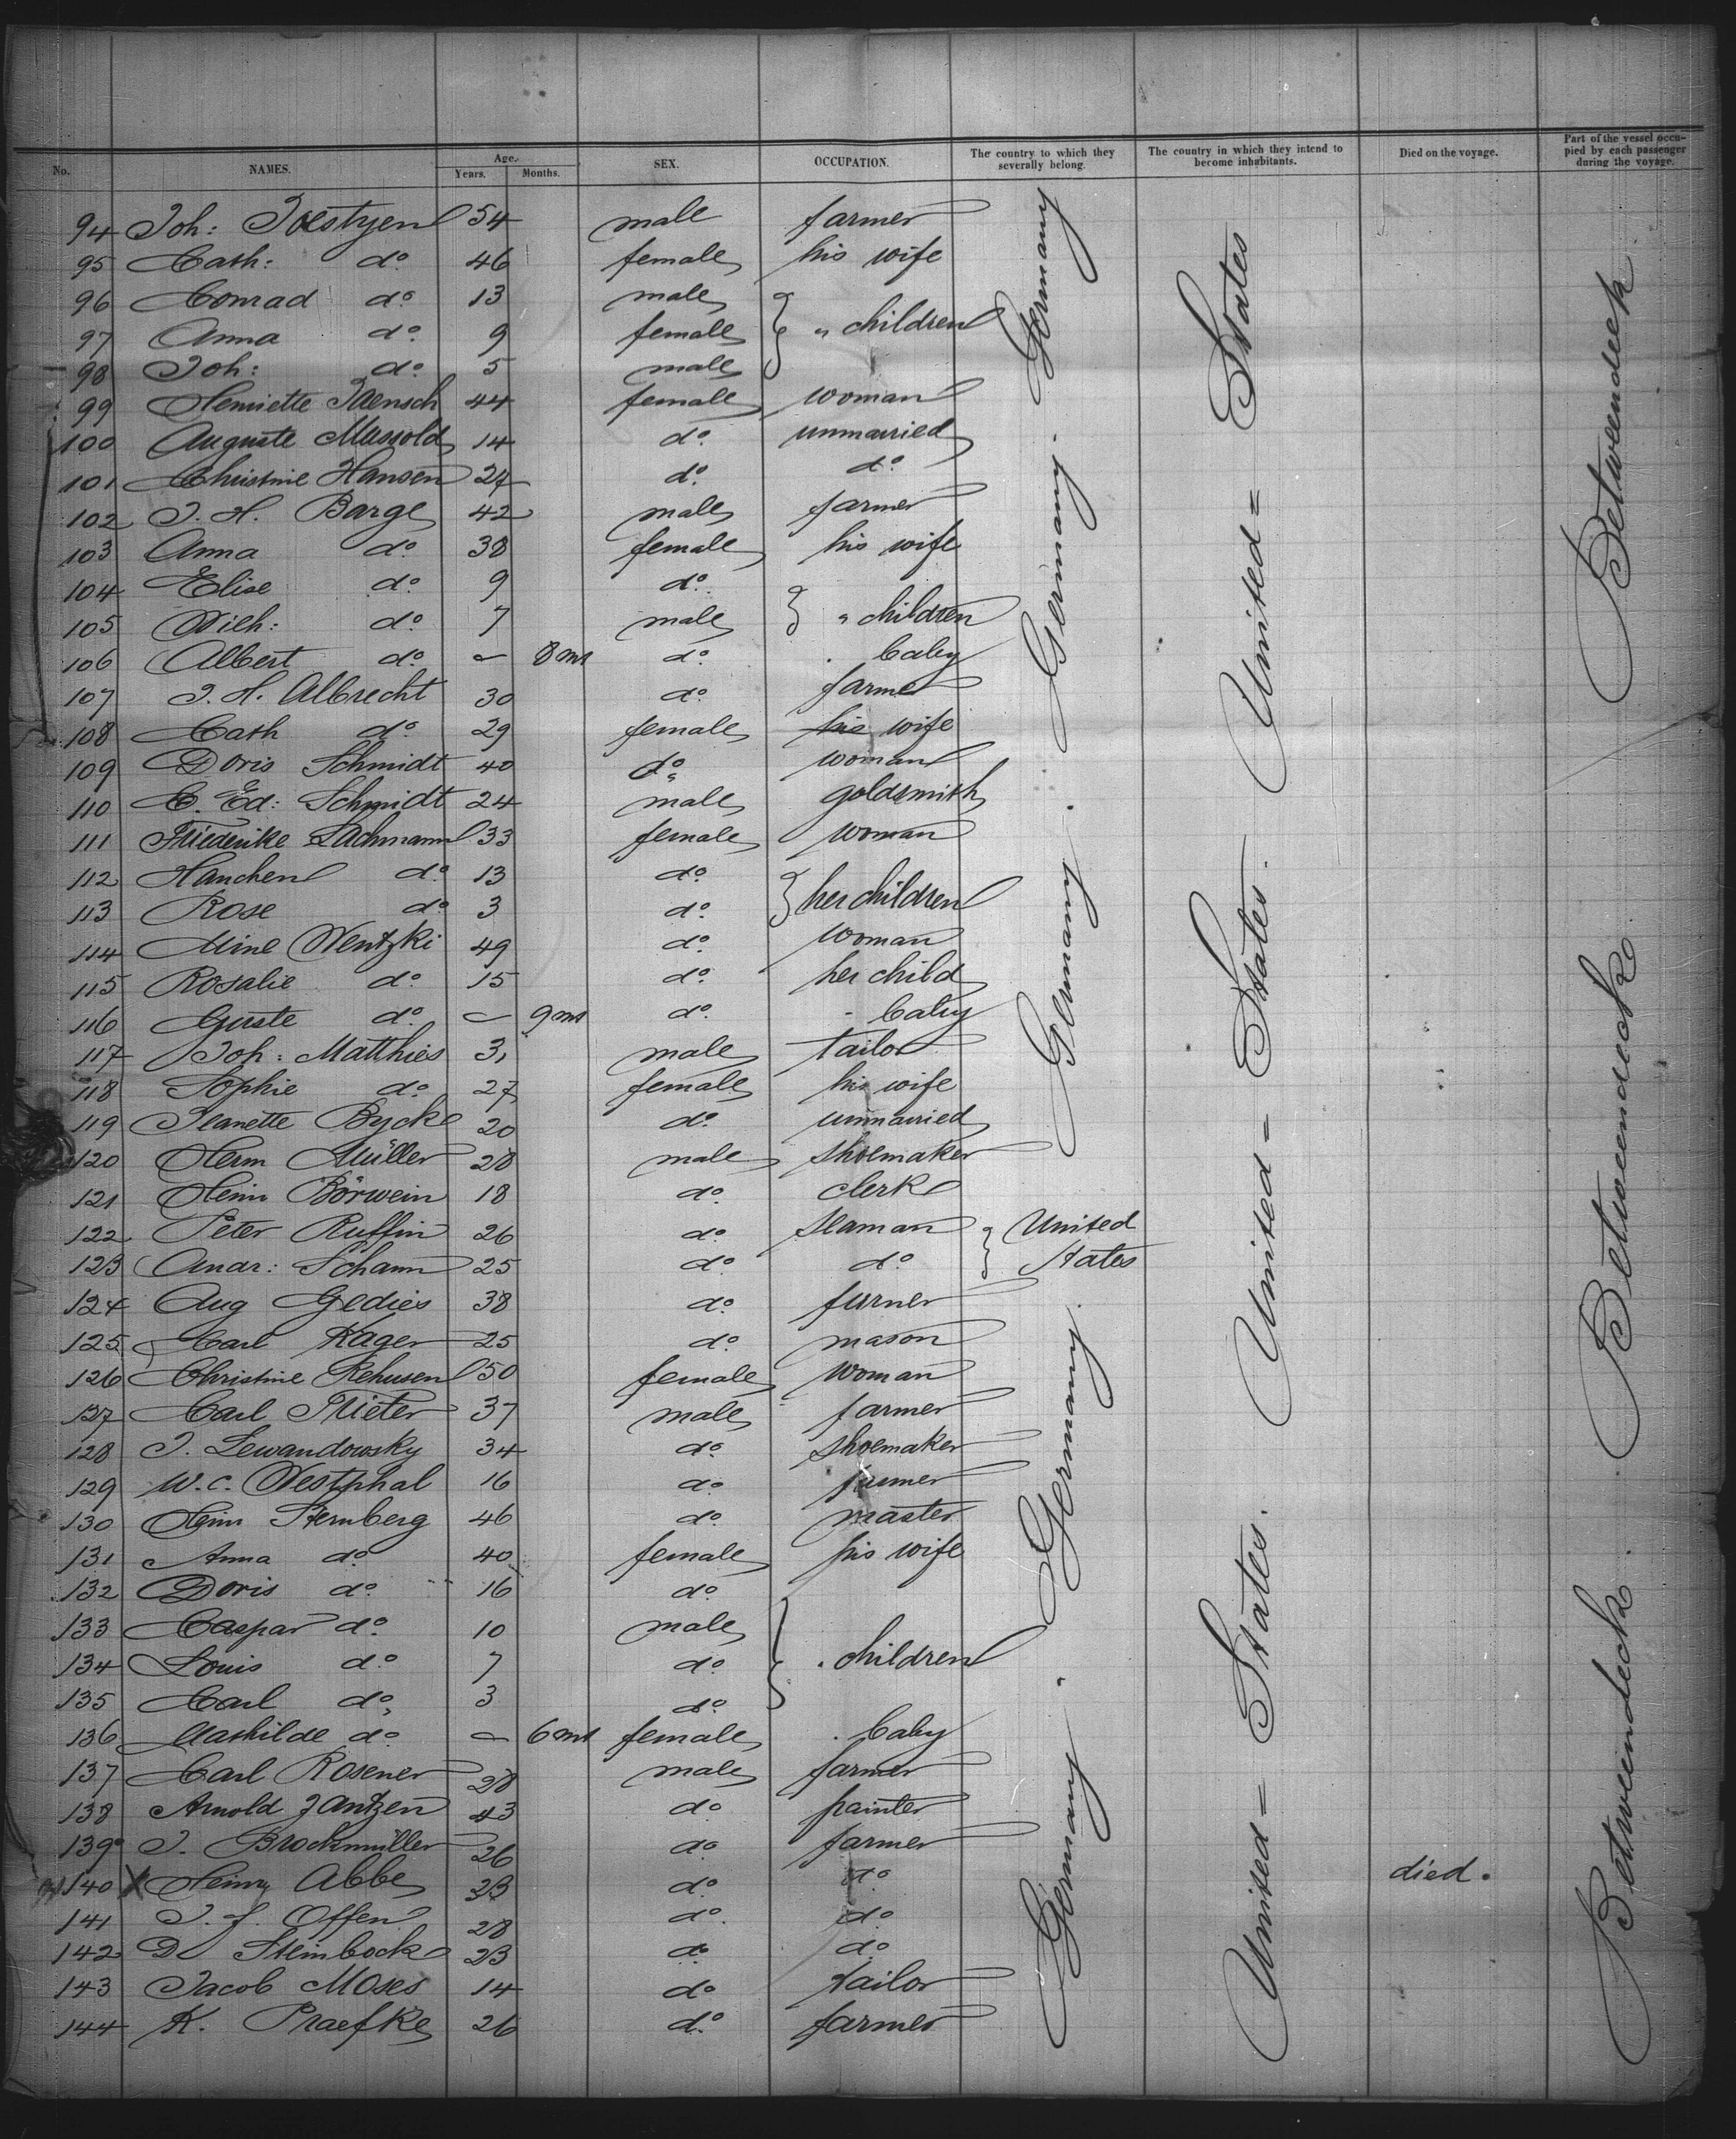 No. NAMES. Age. Years. Months. SEX. OCCUPATION. The country to which they severally belong. The country in which they intend to become inhabitants. Died on the voyage. Part of the vessel occupied by each passenger during the voyage.
94 Joh: 54 male farmer
95 Cath: do. 46 female his wife
96 Conrad do. 13 male
97 Anna do. 9 female } " children
98 Joh: do. 5 male
99 Henriette Jaensch 44 female woman
100 Auguste 14 do. unmarried
101 Christine Hansen 27 do. do.
102 J. H. Barge 42 male farmer
103 Anna do. 38 female his wife
104 Elise do. 9 do.
105 Wilh: do. 7 male } " children
106 Albert do. – 8 ms do. . baby
107 J. H. Albrecht 30 do. farmer
108 Cath do. 29 female his wife
109 Doris Schmidt 40 do. woman
110 C. Ed: Schmidt 24 male goldsmith
111 Friederike Lachmann 33 female woman
112 Hanchen do. 13 do.
113 Rose do. 3 do. } her children
114 Mine Wentzki 49 do. woman
115 Rosalie do. 15 do. her child
116 Guste do. – 9 ms do. - baby
117 Joh: Matthies 31 male tailor
118 Sophie do. 27 female his wife
119 Jeanette Bycke 20 do. unmarried
120 Herm Müller 28 male shoemaker
121 Heinr Börwein 18 do. clerk
122 Peter Ruffin 26 do. seaman } United
123 Andr: Schann 25 do. do. States
124 Aug Gedies 38 do. furner
125 Carl Kager 25 do. mason
126 Christine Rehusen 50 female woman
127 Carl Prieter 37 male farmer
128 J. Lewandowsky 34 do. shoemaker
129 W. C. Westphal 16 do. farmer
130 Heinr Sternberg 46 do. master
131 Anna do. 40 female his wife
132 Doris do. 16 do.
133 Caspar do. 10 male
134 Louis do. 7 do. } . children
135 Carl do. 3 do.
136 Mathilde do. – 6 ms female . baby
137 Carl Rosener 28 male farmer
138 Arnold Jantzen 43 do. painter
139 J. Brockmüller 26 do. farmer
140 X Heinr Abbe 23 do. do. died.
141 J. J. Offen 28 do. do.
142 D. Steinbock 23 do. do.
143 Jacob Moses 14 do. tailor
144 K. Praefke 26 do. farmer
Germany. Germany. Germany. Germany. Germany
United = States. United = States. United = States
Betweendeck. Betweendeck. Betweendeck